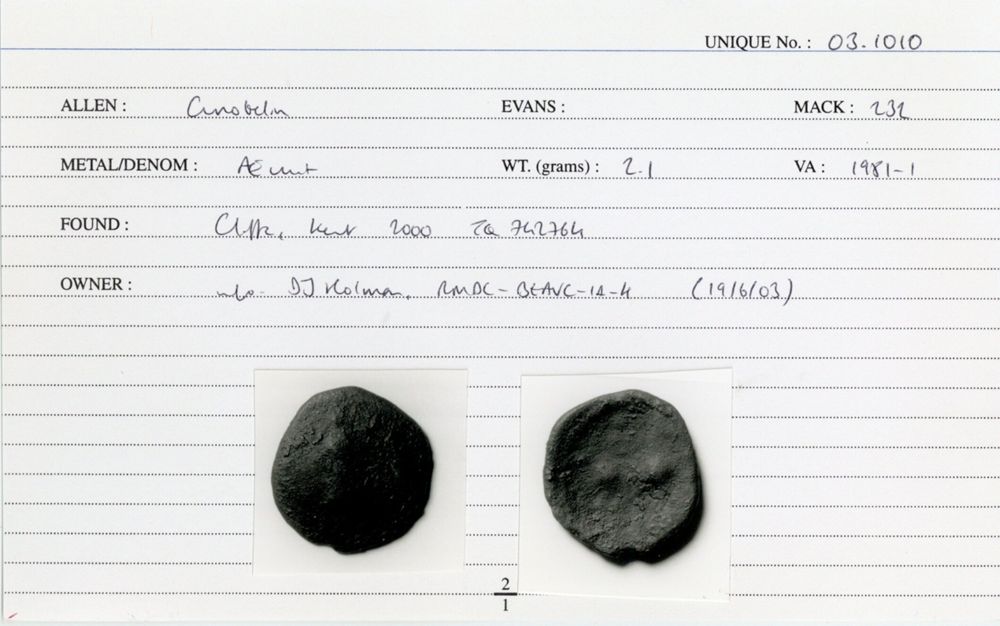 UNIQUE No. : 03.1010
ALLEN : Cunobelin EVANS : MACK : 232
METAL/DENOM : Æ unit WT. (grams) : 2.1 VA : 1981-1
FOUND : Cliffe, Kent 2000 TQ 742764
OWNER : info. DJ Holman, (19/6/03)
2
1